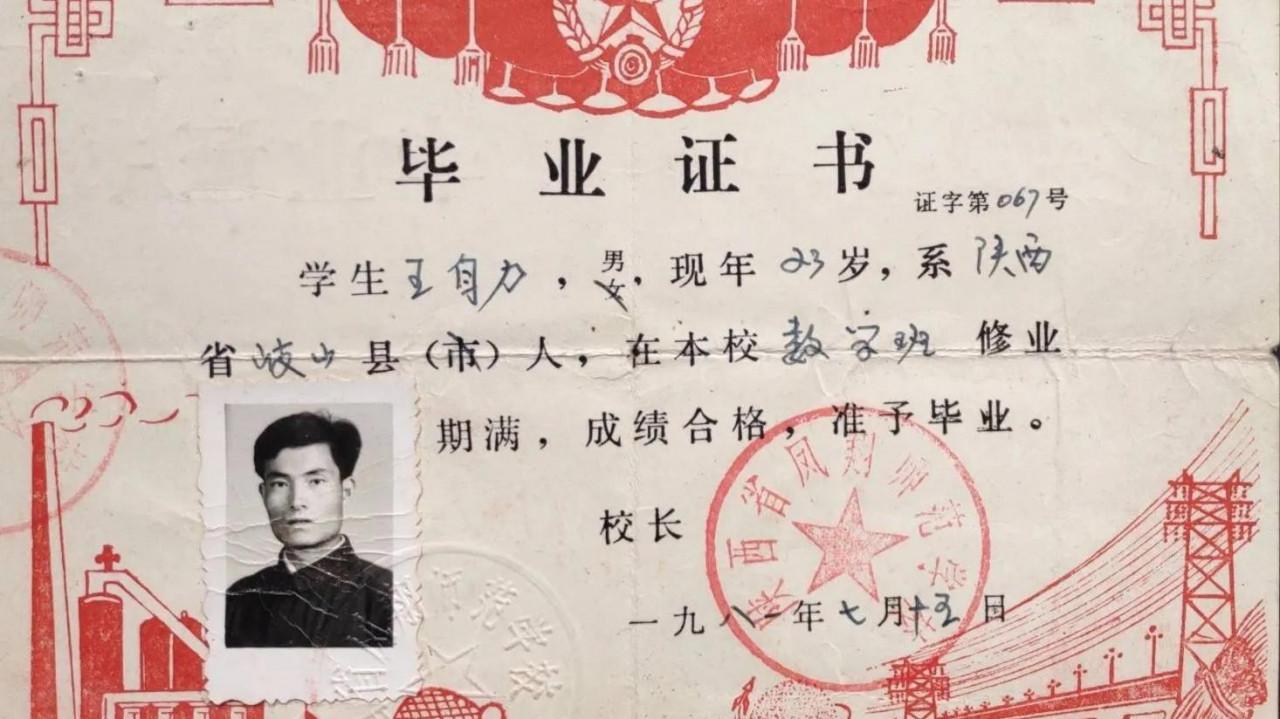 毕业证书
证字第067号
学生王自力，男女，现年23岁，系陕西
省岐山县（市）人，在本校数学班修业
期满，成绩合格，准予毕业。
校长
陕西省凤翔师范学校
一九八一年七月十五日